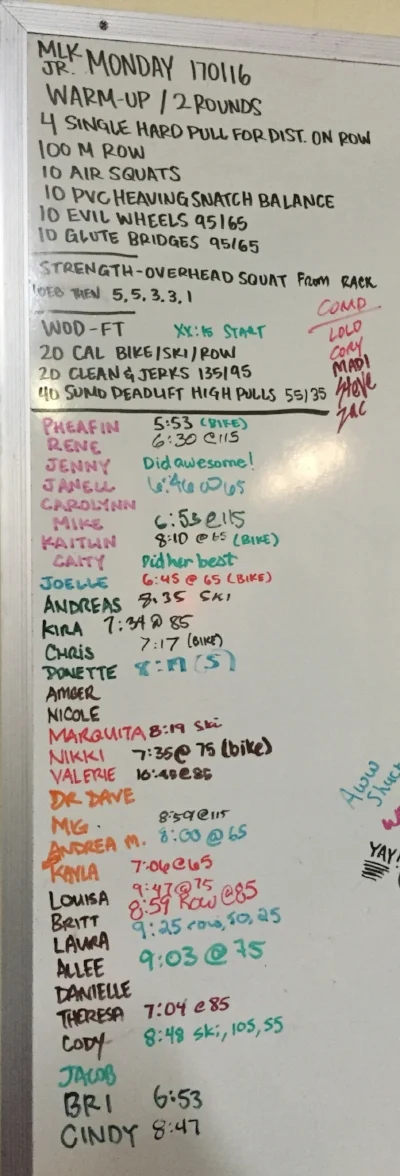 MLK JR. MONDAY 170116
WARM-UP / 2 ROUNDS
4 SINGLE HARD PULL FOR DIST. ON ROW
100 M ROW
10 AIR SQUATS
10 PVC HEAVING SNATCH BALANCE
10 EVIL WHEELS 95/65
10 GLUTE BRIDGES 95/65
STRENGTH-OVERHEAD SQUAT FROM RACK
THEN 5, 5, 3, 3, 1
WOD-FT XX:15 START
20 CAL BIKE/SKI/ROW
20 CLEAN & JERKS 135/95
40 SUMO DEADLIFT HIGH PULLS 55/35
COMP
LOLO
CORY
MADI
Steve
Zac
PHEAFIN 5:53 (BIKE)
RENE 6:30 @115
JENNY Did awesome!
JANELL 6:46 @ 65
CAROLYNN
MIKE 6:53 @ 115
KAITLIN 8:10 @ 65 (BIKE)
CAITY Did her best
JOELLE 6:45 @ 65 (BIKE)
ANDREAS 8:35 SKI
KIRA 7:34 @ 85
CHRIS 7:17 (BIKE)
DONETTE (S)
AMBER
NICOLE
MARQUITA 8:19 Ski
NIKKI 7:35 @ 75 (bike)
VALERIE
DR DAVE
MG. 8:59 @115
ANDREA M. 8:00 @ 65
KAYLA 7:06 @ 65
LOUISA 9:47 @ 75
BRITT 8:59 Row @ 85
LAURA 9:25 row, 50, 25
ALLEE 9:03 @ 75
DANIELLE
THERESA 7:04 @ 85
CODY 8:48 Ski, 105, 55
JACOB
BRI 6:53
CINDY 8:47
Aww
YAY!